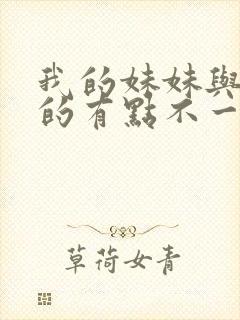 我的妹妹與
的有點不一
草荷女青